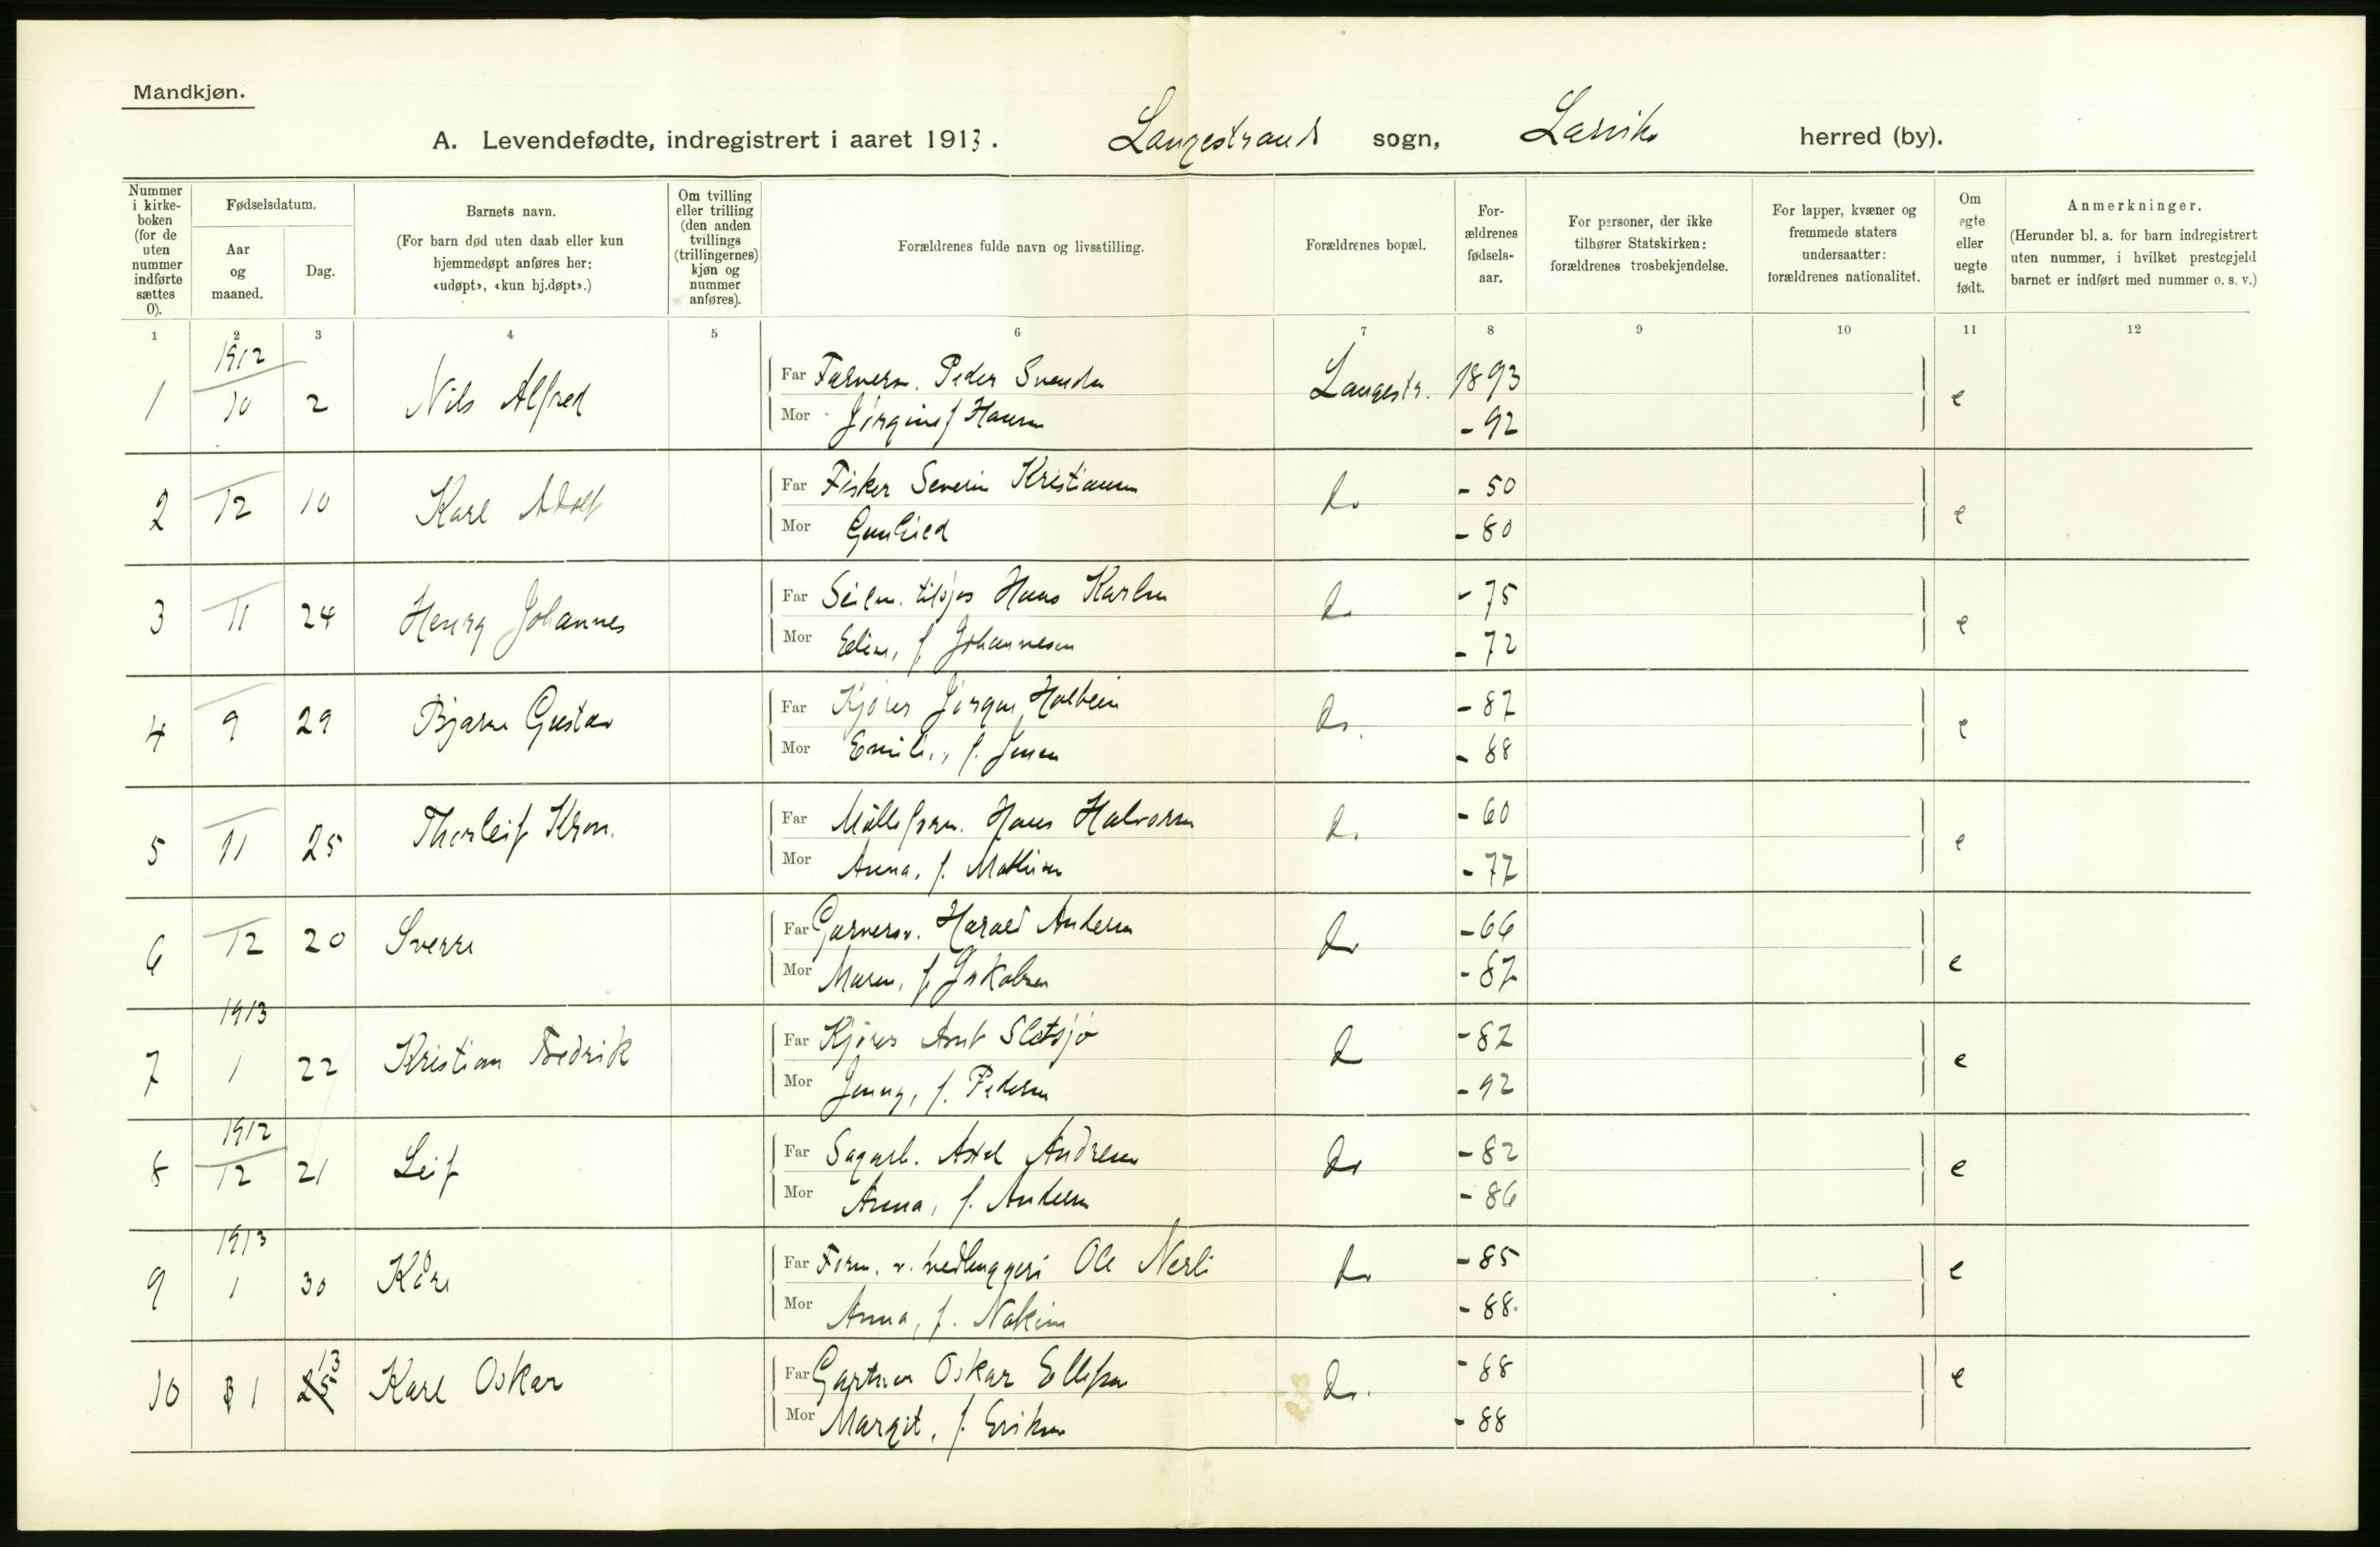 Mandkjøn.
A. Levendefødte, indregistrert i aaret 1913. Langestrands sogn, Larvik herred (by).
Nummer i kirke-boken (for de uten nummer indførte sættes 0).
Fødselsdatum.
Aar og maaned.
Dag.
Barnets navn.
(For barn død uten daab eller kun hjemmedøpt anføres her: «udøpt», «kun hj.døpt».)
Om tvilling eller trilling (den anden tvillings (trillingernes) kjøn og nummer anføres).
Forældrenes fulde navn og livsstilling.
Forældrenes bopæl.
For-ældrenes fødsels-aar.
For personer, der ikke tilhører Statskirken: forældrenes trosbekjendelse.
For lapper, kvæner og fremmede staters undersaatter: forældrenes nationalitet.
Om egte eller uegte født.
Anmerkninger.
(Herunder bl. a. for barn indregistrert uten nummer, i hvilket prestegjeld barnet er indført med nummer o. s. v.)
1 2 3 4 5 6 7 8 9 10 11 12
1912
1 10 2 Nils Alfred Far Peder Langestr. 1893 e
Mor Hansen - 92
2 12 10 Karl Adolf Far Fisker Severin Kristiansen do - 50 e
Mor - 80
3 11 24 Henry Johannes Far Hans Karlsen do - 75 e
Mor f Johannesen - 72
4 9 29 Bjarne Gustav Far Kjører Jørgen Holbein do. - 87 e
Mor f. Jensen - 88
5 11 25 Thorleif Kron. Far Hans Halvorsen do - 60 e
Mor Anna, f. Mathisen - 77
6 12 20 Sverre Far Garversv. Harald Andersen do - 66 e
Mor Maren, f. Jakobsen - 87
1913
7 1 22 Kristian Fredrik Far Kjører Arnt Sletsjø do - 82 e
Mor Jenny, f. Pedersen - 92
1912
8 12 21 Leif Far Sagarb. Axel Andresen do - 82 e
Mor Anna, f. Andersen - 86
1913
9 1 30 Kåre Far Form. v. vedhuggeri Ole Nerli do - 85 e
Mor Anna, f. - 88
10 1 13 Karl Oskar Far Gartner Oskar Ellefsen do. - 88 e
Mor Margit, f. Eriksen - 88